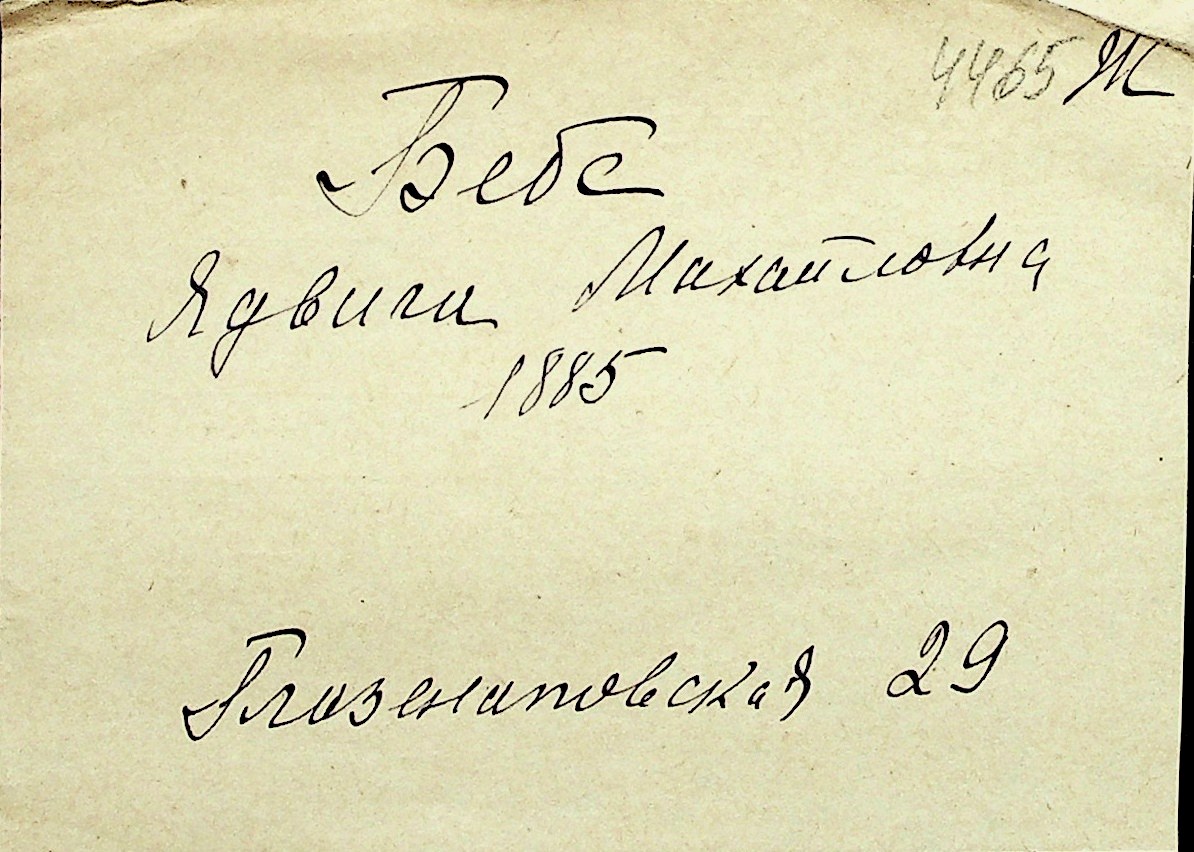 4465 Ж
Бебс
Ядвига Михайловна
1885
Глазенаповская 29